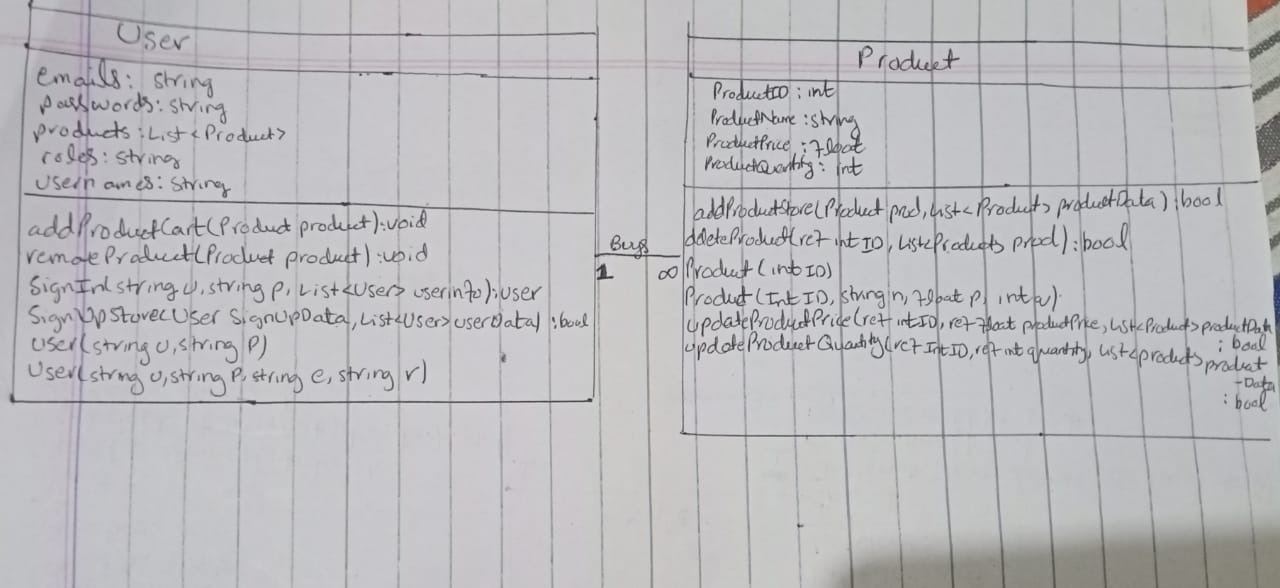 User
emails: string
passwords: string
products: List<Product>
roles: string
usernames: string
addProductCart(Product product): void
removeProduct(Product product): void
SignIn(string u, string p, List<User> userinfo): user
SignUpStore(User SignUpData, List<User> userData): bool
User(string u, string p)
User(string u, string p, string e, string r)
Buys
1 ∞
Product
ProductID: int
ProductName: string
ProductPrice: float
ProductQuantity: int
addProductStore(Product prod, List<Product> productData): bool
deleteProduct(ref int ID, List<Product> prod): bool
Product(int ID)
Product(Int ID, string n, float p, int q)
updateProductPrice(ref int ID, ref float productPrice, List<Product> productData
: bool
updateProductQuantity(ref Int ID, ref int quantity, List<product> product
-Data
: bool